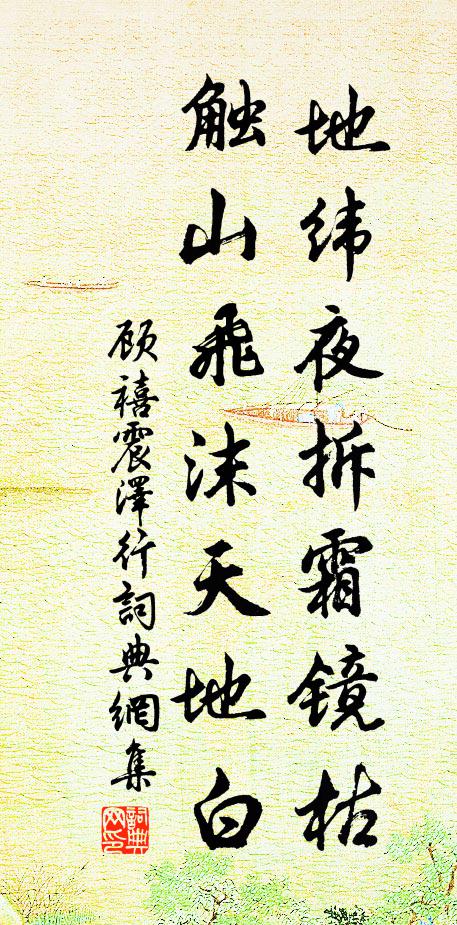 地纬夜拆霜镜枯
触山飞沫天地白
顾禧震澤行詞典網集
詞典网印